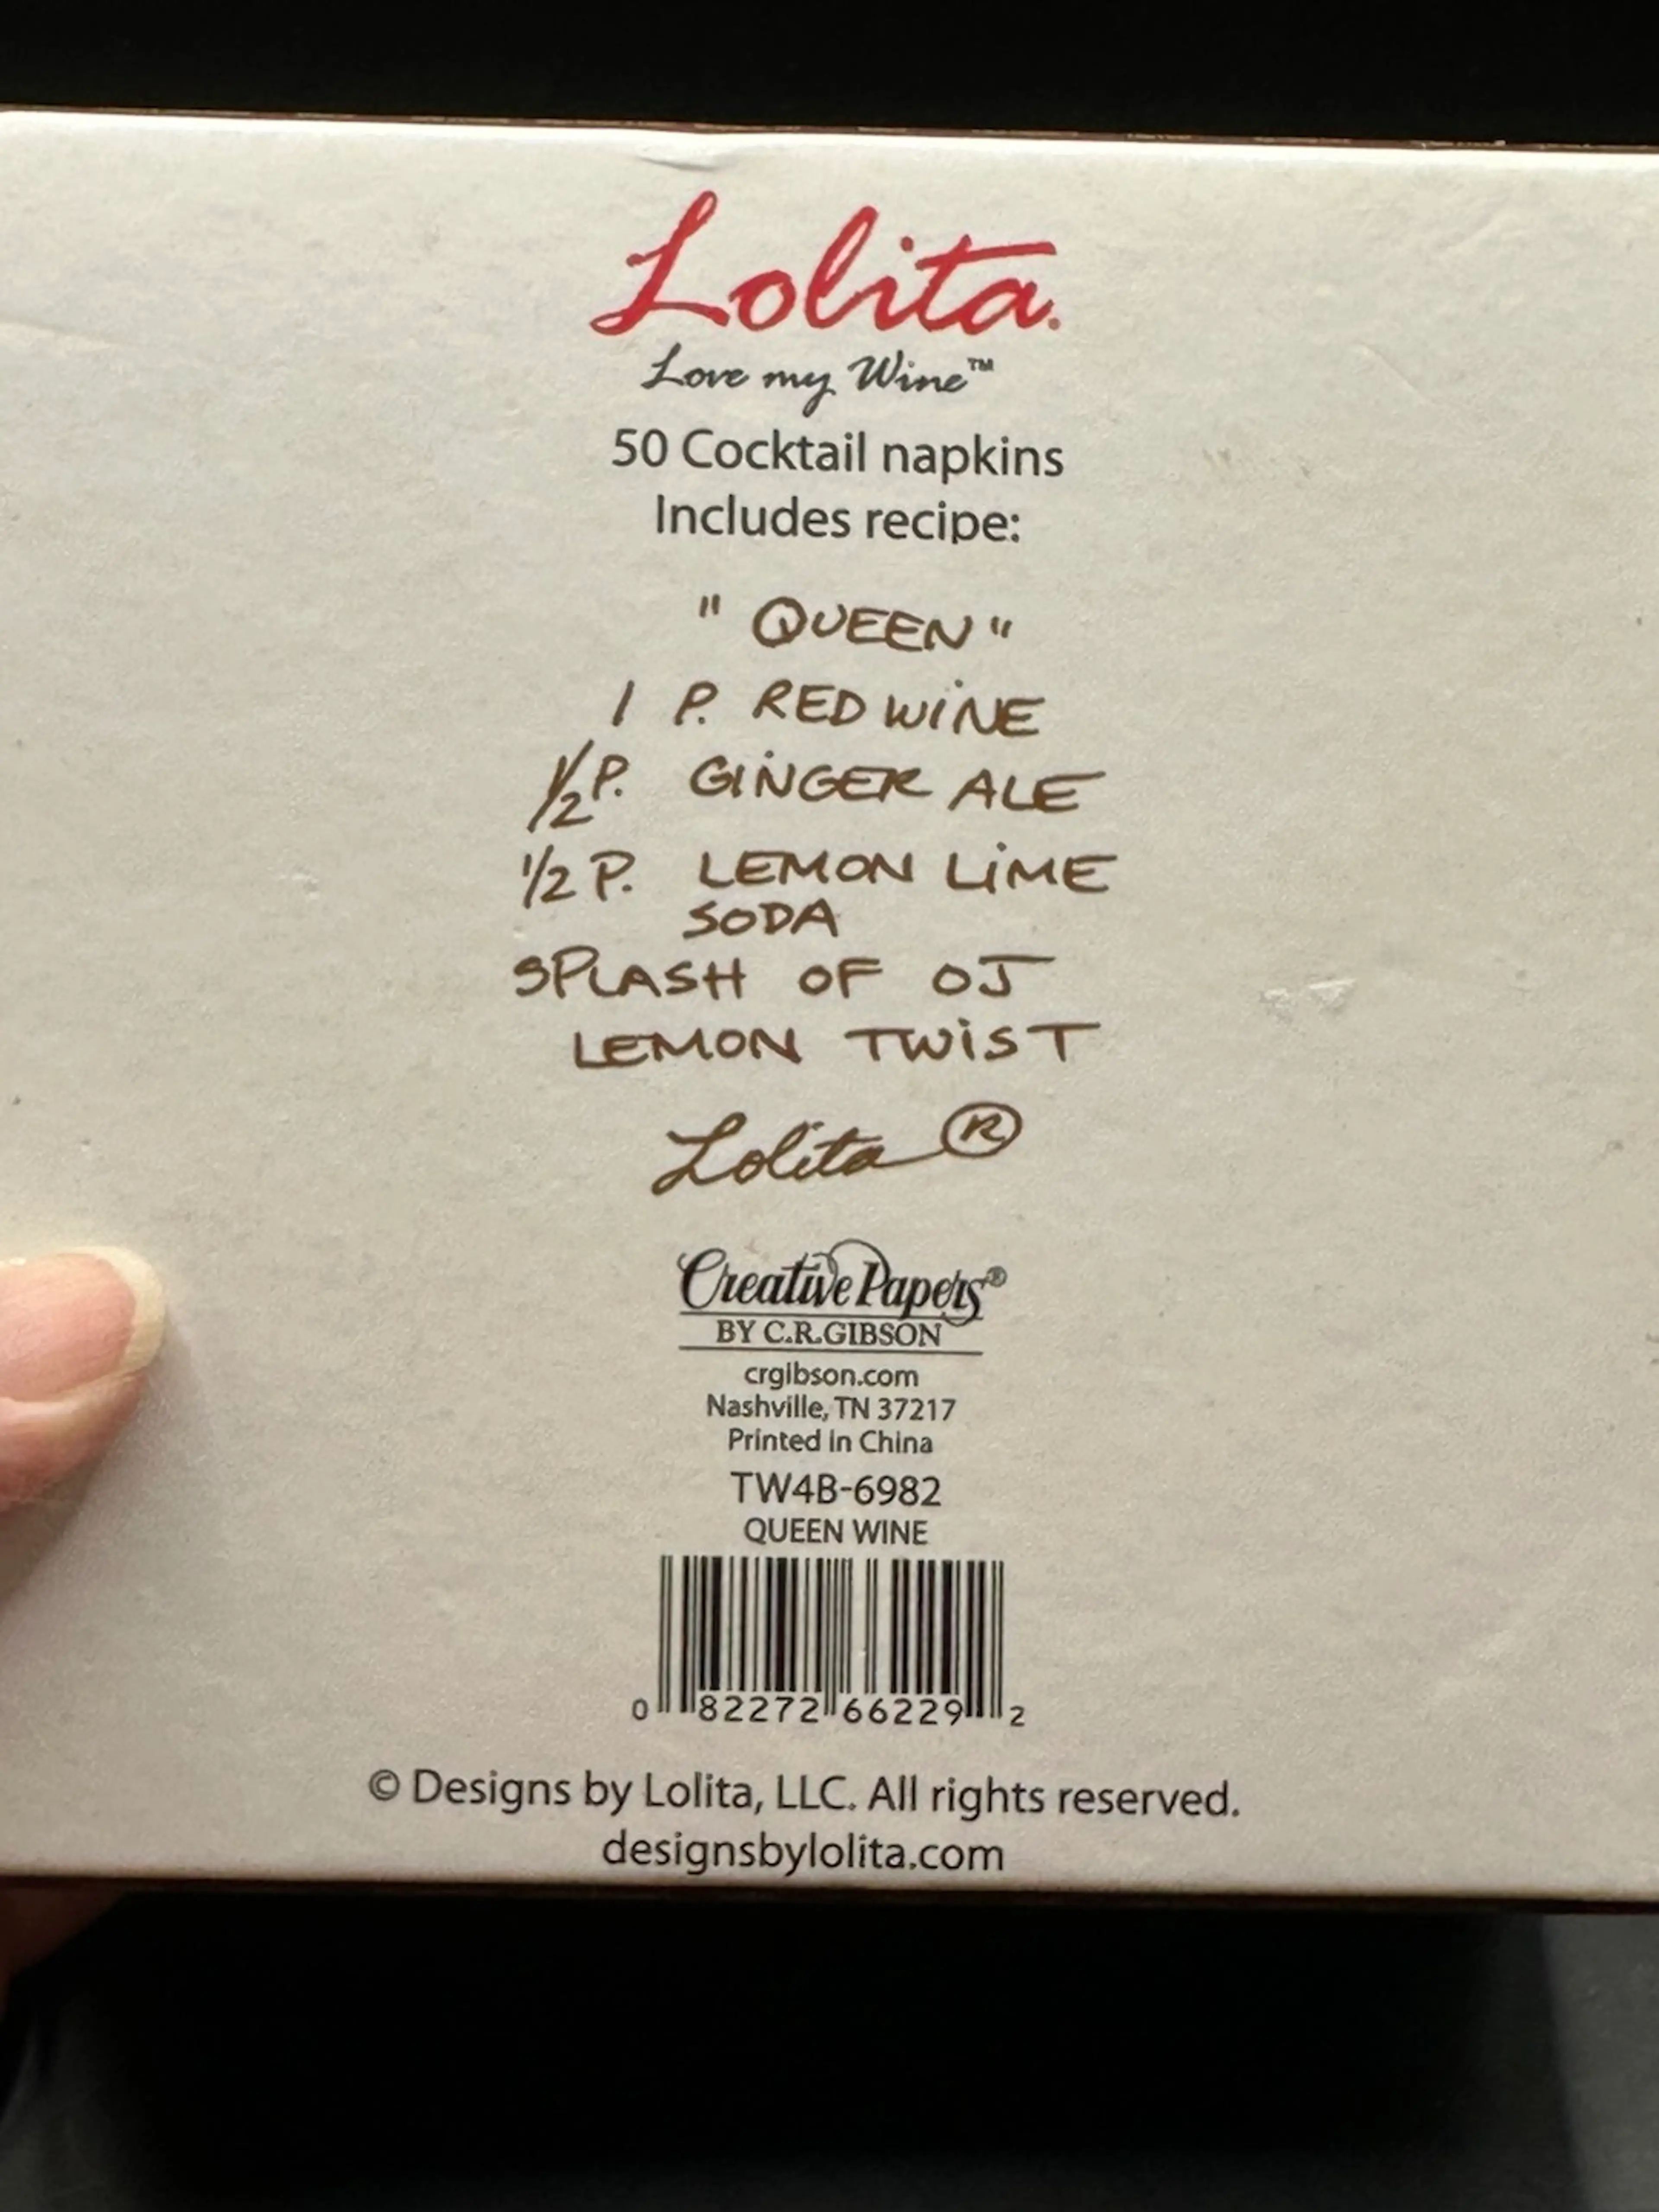 Lolita.
Love my Wine™
50 Cocktail napkins
Includes recipe:
" QUEEN "
1 P. RED WINE
1/2 P. GINGER ALE
1/2 P. LEMON LIME
SODA
SPLASH OF OJ
LEMON TWIST
Lolita ®
Creative Papers®
BY C.R.GIBSON
crgibson.com
Nashville, TN 37217
Printed in China
TW4B-6982
QUEEN WINE
0 82272 66229 2
© Designs by Lolita, LLC. All rights reserved.
designsbylolita.com